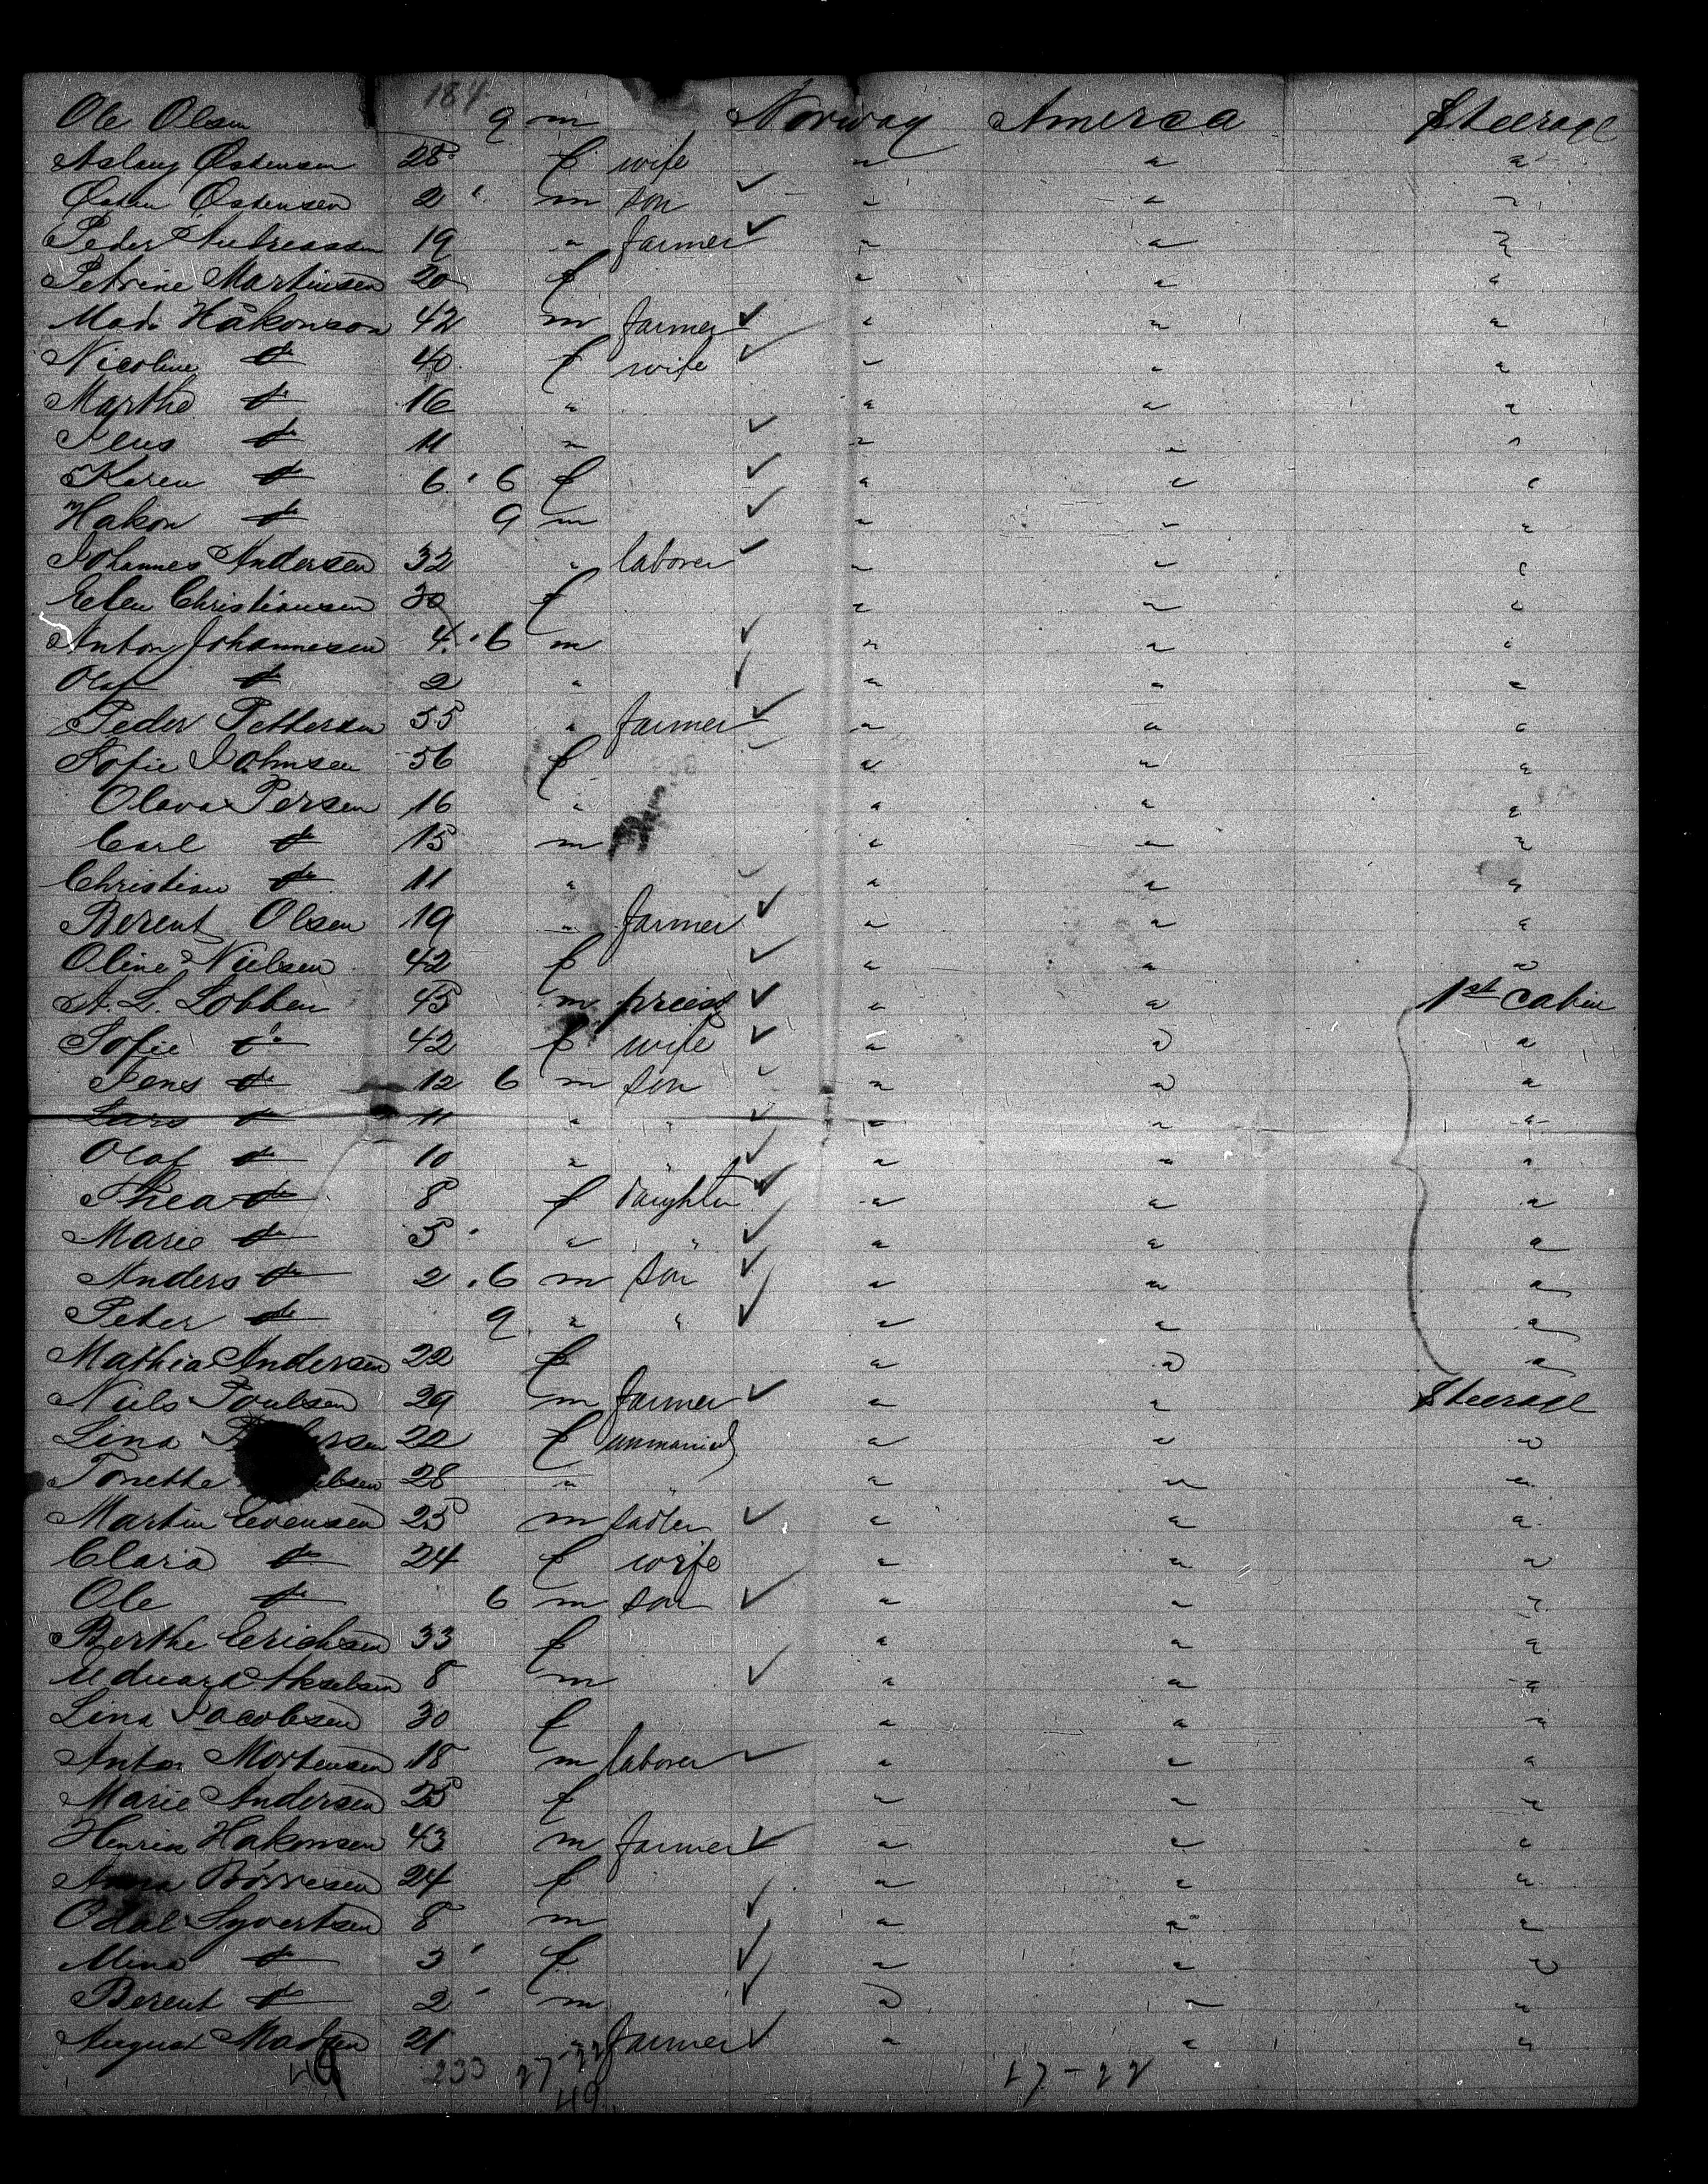 184
Ole Olsen 9 m Norway America Steerage
Aslaug Østensen 28 f wife " " "
Østen Østensen 2 ' m son ✓ " " "
Peder Andreassen 19 " farmer ✓ " " "
Petrine Martinsen 20 f " " "
Mads Håkonson 42 m farmer ✓ " " "
Nicoline do 40 f wife ✓ " " "
Marthe do 16 " " " "
Jens do 11 " ✓ " " "
Karen do 6 ' 6 f ✓ " " "
Hakon do 9 m ✓ " " "
Johannes Andersen 32 " laborer ✓ " " "
Ellen Christiansen 30 f " " "
Anton Johannesen 4 ' 6 m ✓ " " "
Olaf do 2 " ✓ " " "
Peder Pettersen 55 " farmer ✓ " " "
Sofie Johnsen 56 f ✓ " " "
Olava Persen 16 " " " "
Carl do 15 m " " "
Christian do 11 " ✓ " " "
Berent Olsen 19 " farmer ✓ " " "
Oline Nielsen 42 f ✓ " " "
A. L. Lobben 45 m priest ✓ " " 1st cabin
Sofie do 42 f wife ✓ " " "
Jens do 12 6 m son ✓ " " "
Lars do 11 " " ✓ " " "
Olaf do 10 " " ✓ " " "
Thea do 8 f daughter ✓ " " "
Marie do 5 ' " " ✓ " " "
Anders do 2 ' 6 m son ✓ " " "
Peter do 9 " " ✓ " " "
Mathia Andersen 22 f " " "
Niels Poulsen 29 m farmer ✓ " " Steerage
Lina 22 f unmarried " " "
Tonette 28 " " " " "
Martin Evensen 25 m sadler ✓ " " "
Clara do 24 f wife " " "
Ole do 6 m son ✓ " " "
Berthe Erichsen 33 f " " "
Edvard Akselsen 8 m ✓ " " "
Lina Jacobsen 30 f " " "
Anton Mortensen 18 m laborer ✓ " " "
Marie Andersen 25 f " " "
Henrik Hakonsen 43 m farmer ✓ " " "
Anna Börresen 24 f " " "
Odal Syvertsen 8 m ✓ " " "
Mina do 3 ' f ✓ " " "
Berent do 2 ' m ✓ " " "
August Madsen 21 " farmer ✓ " " "
49 233 27-22 17-22
49